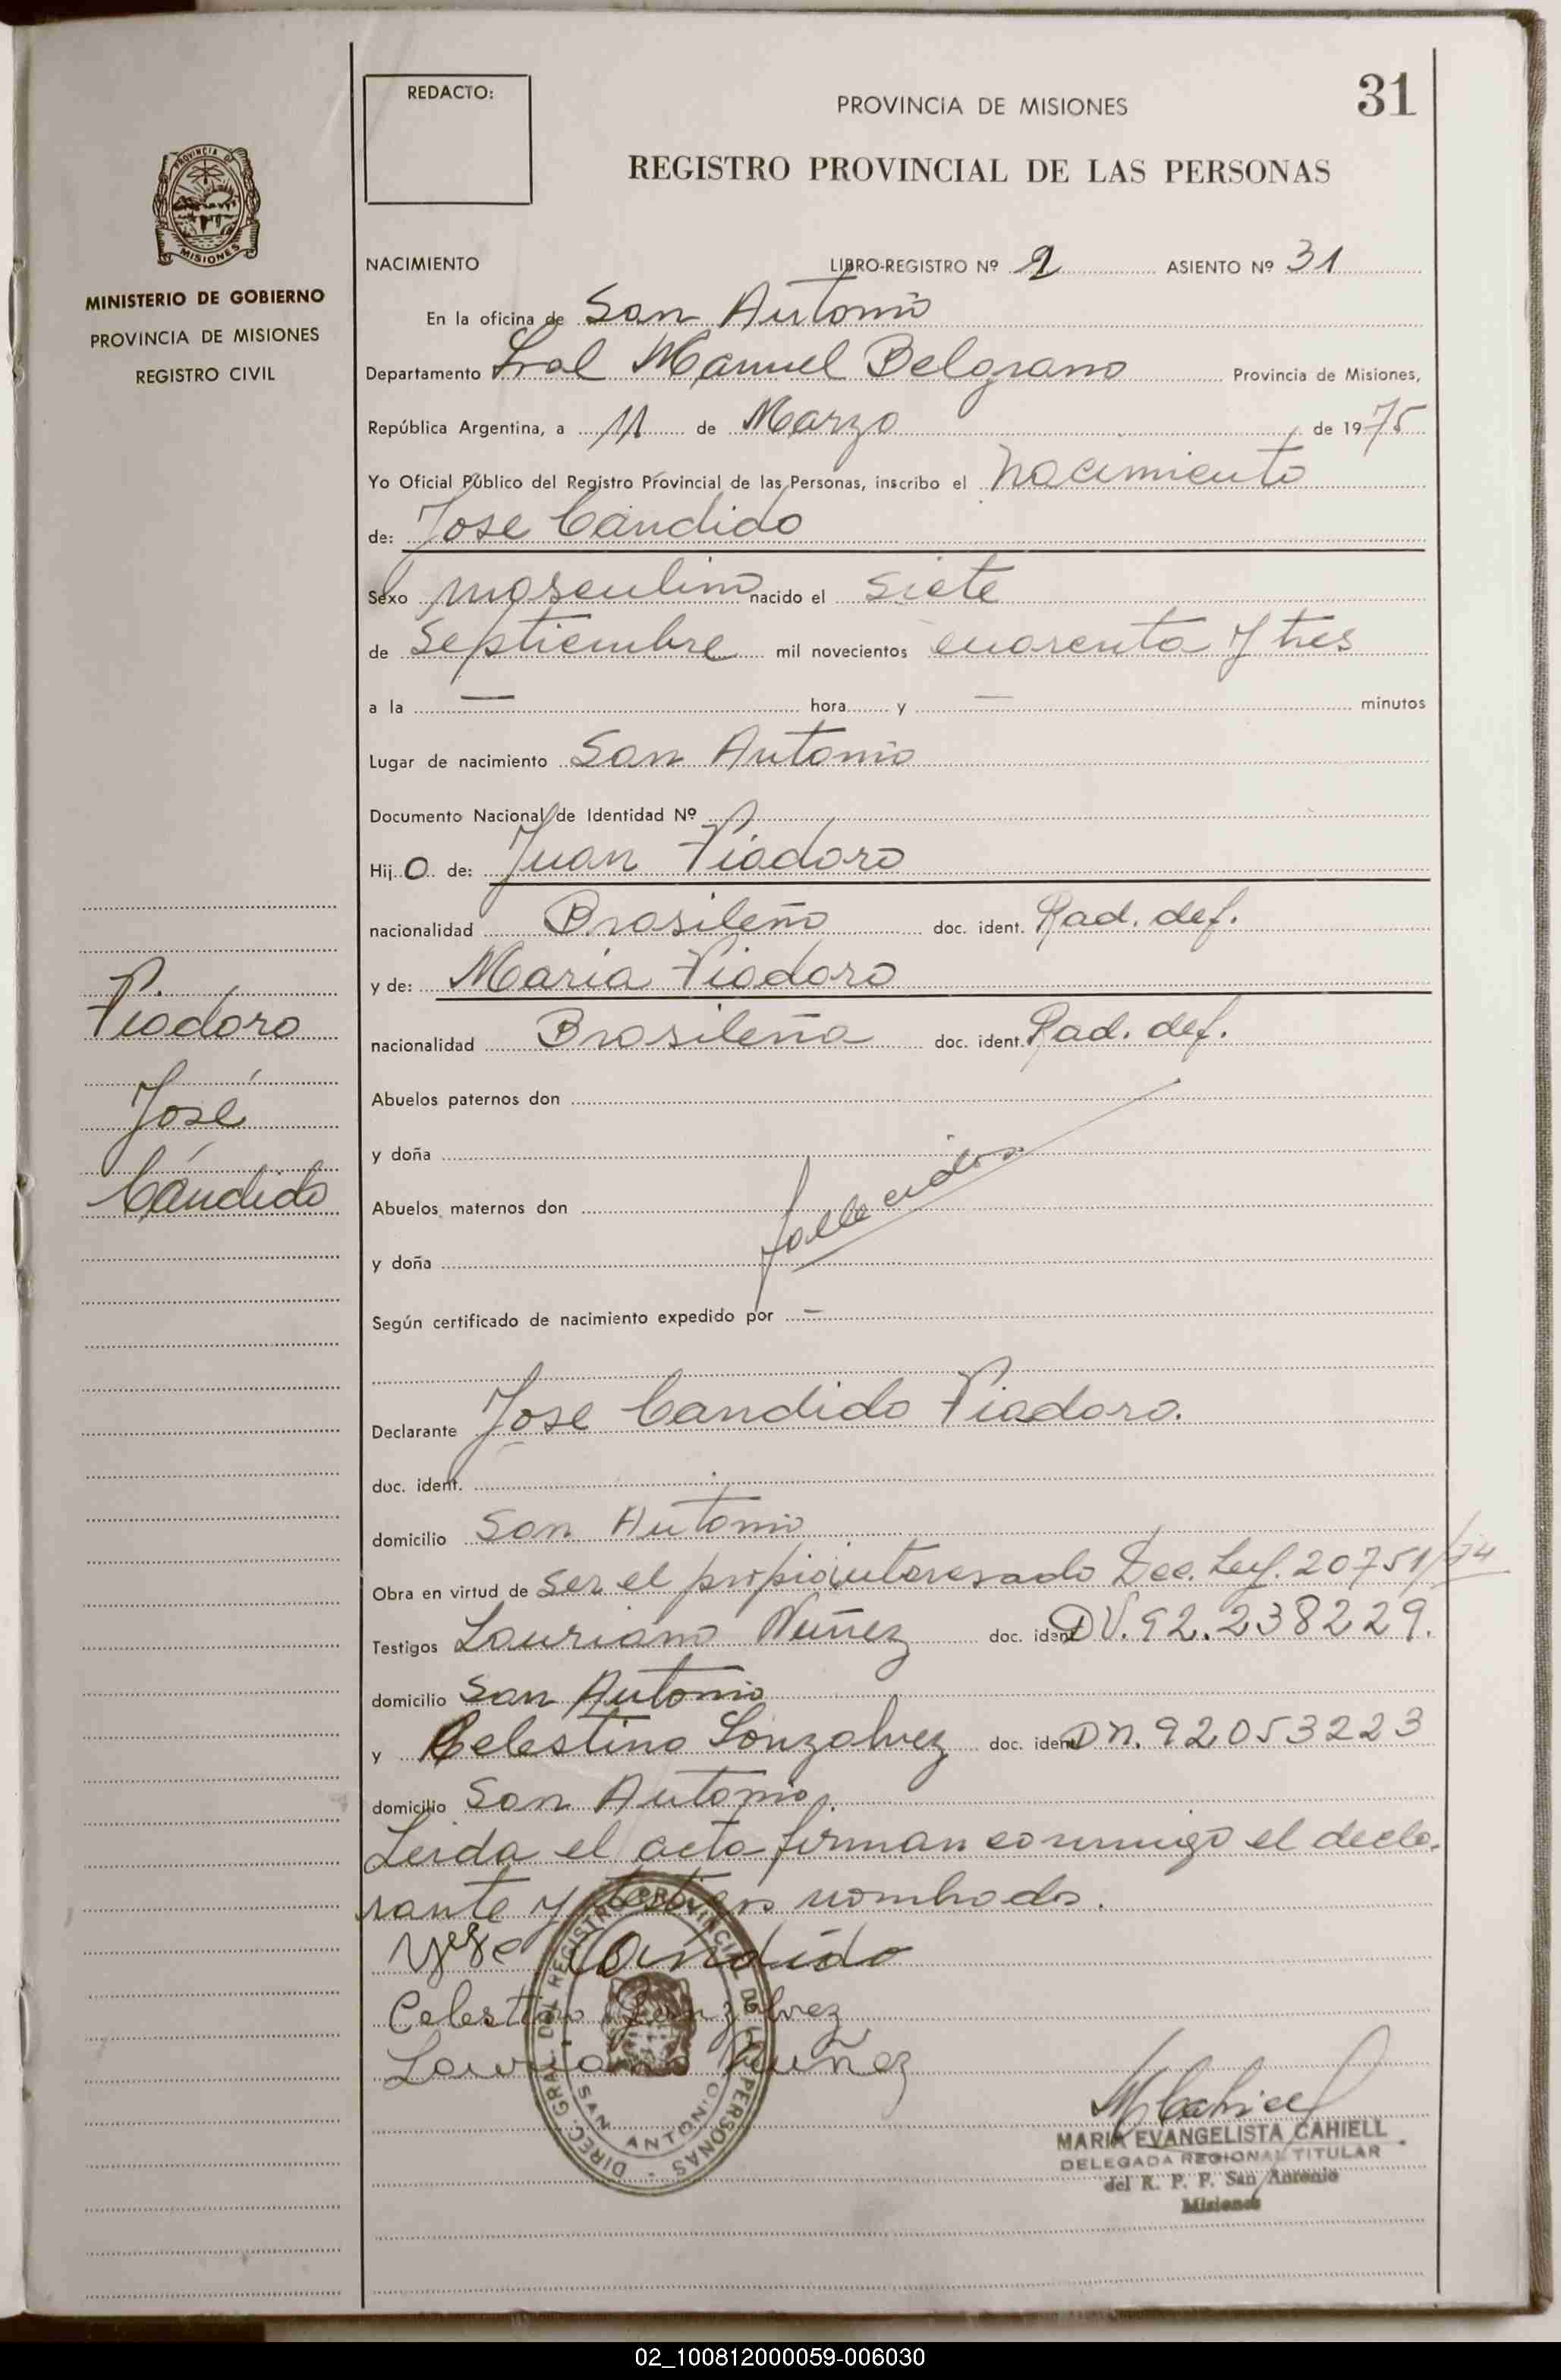 REDACTO:
PROVINCIA DE MISIONES
31
REGISTRO PROVINCIAL DE LAS PERSONAS
PROVINCIA DE
MISIONES
MINISTERIO DE GOBIERNO
PROVINCIA DE MISIONES
REGISTRO CIVIL
NACIMIENTO LIBRO-REGISTRO Nº 2 ASIENTO Nº 31
En la oficina de San Antonio
Departamento Gral Manuel Belgrano Provincia de Misiones,
República Argentina, a 11 de Marzo de 1975
Yo Oficial Público del Registro Provincial de las Personas, inscribo el nacimiento
de: Jose Cándido
Sexo masculino nacido el siete
de Septiembre mil novecientos cuarenta y tres
a la — hora y — minutos
Lugar de nacimiento San Antonio
Documento Nacional de Identidad Nº
Hijo de: Juan Fiodoro
nacionalidad Brasileño doc. ident. Rad. def.
y de: Maria Fiodoro
nacionalidad Brasileña doc. ident. Rad. def.
Fiodoro
José
Cándido
Abuelos paternos don
y doña
Abuelos maternos don
y doña
fallecidos
Según certificado de nacimiento expedido por —
Declarante Jose Candido Fiodoro.
doc. ident.
domicilio San Antonio
Obra en virtud de ser el propio interesado Dec. Ley. 20751/74
Testigos Lauriano Nuñez doc. ident DV. 92.238229.
domicilio San Antonio
y Celestino Gonzalvez doc. ident DN. 92053223
domicilio San Antonio.
Leida el acta firman conmigo el decla-
rante y testigos nombrados.
José Candido
Celestino Gonzalvez
Lauriano Nuñez
DIREC. GRAL. DEL REGISTRO PROVINCIAL DE LAS PERSONAS
SAN ANTONIO
MCahiell
MARIA EVANGELISTA CAHIELL
DELEGADA REGIONAL TITULAR
del R. P. P. San Antonio
Misiones
02_100812000059-006030